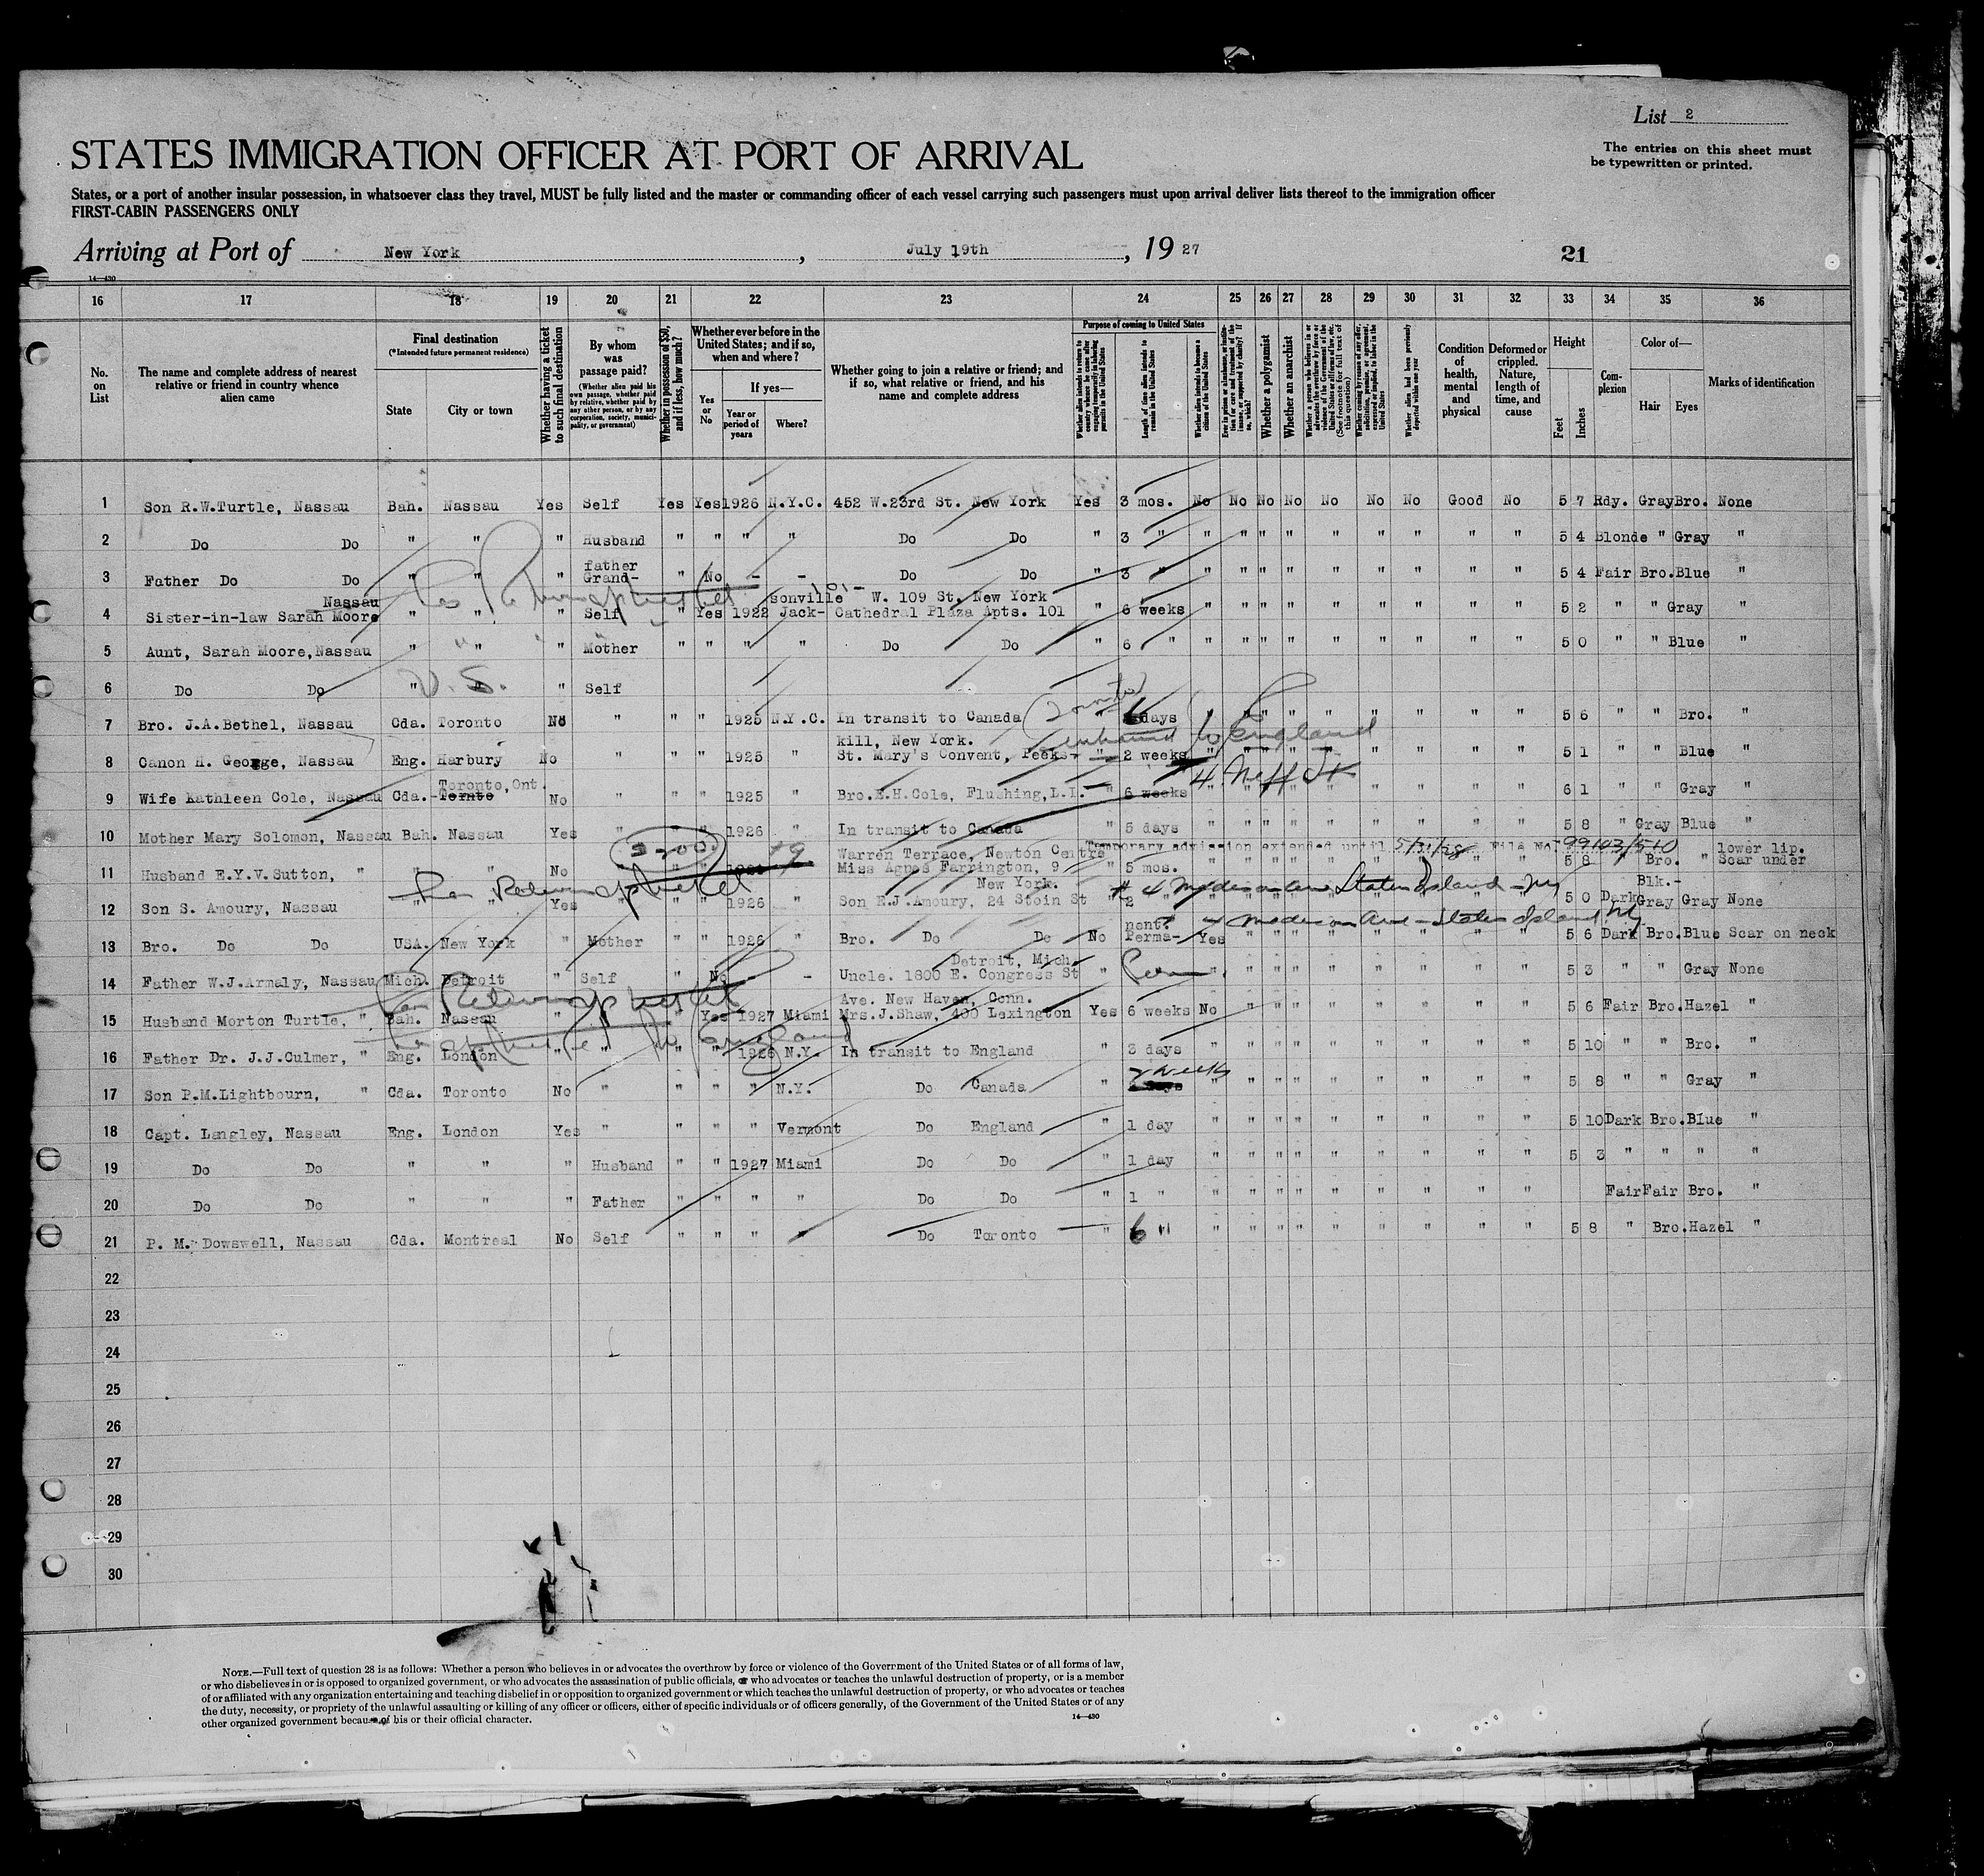 List 2
STATES IMMIGRATION OFFICER AT PORT OF ARRIVAL
The entries on this sheet must
be typewritten or printed.
States, or a port of another insular possession, in whatsoever class they travel, MUST be fully listed and the master or commanding officer of each vessel carrying such passengers must upon arrival deliver lists thereof to the immigration officer
FIRST-CABIN PASSENGERS ONLY
Arriving at Port of New York, July 19th, 19 27
21
14—430
16 17 18 19 20 21 22 23 24 25 26 27 28 29 30 31 32 33 34 35 36
No. on List
The name and complete address of nearest relative or friend in country whence alien came
Final destination
(*Intended future permanent residence)
State
City or town
Whether having a ticket to such final destination
By whom was passage paid?
(Whether alien paid his own passage, whether paid by relative, whether paid by any other person, or by any corporation, society, municipality, or government)
Whether in possession of $50, and if less, how much?
Whether ever before in the United States; and if so, when and where?
Yes or No
If yes—
Year or period of years
Where?
Whether going to join a relative or friend; and if so, what relative or friend, and his name and complete address
Purpose of coming to United States
Length of time alien intends to remain in the United States
Whether alien intends to become a citizen of the United States
Whether a polygamist
Whether an anarchist
Condition of health, mental and physical
Deformed or crippled. Nature, length of time, and cause
Height
Feet
Inches
Complexion
Color of—
Hair
Eyes
Marks of identification
1 Son R.W.Turtle, Nassau Bah. Nassau Yes Self Yes Yes 1926 N.Y.C. 452 W.23rd St. New York Yes 3 mos. No No No No No No No Good No 5 7 Rdy. Gray Bro. None
2 Do Do " " " Husband " " " " Do Do " 3 " " " " " " " " " " 5 4 Blonde " Gray "
father
3 Father Do Do " " " Grand- " No - - Do Do " 3 " " " " " " " " " " 5 4 Fair Bro. Blue "
Nassau sonville W. 109 St. New York
4 Sister-in-law Sarah Moore " " " Self " Yes 1922 Jack- Cathedral Plaza Apts. 101 " 6 weeks " " " " " " " " " 5 2 " " Gray "
5 Aunt, Sarah Moore, Nassau " " " Mother " " " " Do Do " 6 " " " " " " " " " " 5 0 " " Blue "
6 Do Do " U.S. " Self
7 Bro. J.A.Bethel, Nassau Cda. Toronto No " " " 1925 N.Y.C. In transit to Canada " days " " " " " " " " " 5 6 " " Bro. "
to England
kill, New York.
8 Canon H. George, Nassau Eng. Harbury No " " " 1925 " St. Mary's Convent, Peeks- " 2 weeks " " " " " " " " " 5 1 " " Blue "
Toronto, Ont.
9 Wife Kathleen Cole, Nassau Cda. Tornto No " " " 1925 " Bro. E.H.Cole, Flushing, L.I. " 6 weeks " " " " " " " " " 6 1 " " Gray "
10 Mother Mary Solomon, Nassau Bah. Nassau Yes " " " 1926 " In transit to Canada " 5 days " " " " " " " " " 5 8 " Gray Blue "
Temporary admission extended until 5/31/28 File No. 99143/510
Warren Terrace, Newton Centre lower lip.
11 Husband E.Y.V.Sutton, " " " No " " " Miss Agnes Farrington, 9 " 5 mos. 5 8 " Bro. " Scar under
New York. # 4 Madison Ave Staten Island - NY Blk.-
12 Son S. Amoury, Nassau " " Yes " " " 1926 " Son E.J.Amoury, 24 Stoin St " 2 5 0 Dark Gray Gray None
nent? 4 Madison Ave - Staten Island NY
13 Bro. Do Do USA. New York " Mother " " 1926 " Bro. Do Do No Perma- Yes " " " " " " " " 5 6 Dark Bro. Blue Scar on neck
Detroit, Mich.
14 Father W.J.Armaly, Nassau Mich. Detroit " Self " No - - Uncle. 1800 E. Congress St " Perm. " " " " " " " " " 5 3 " " Gray None
Ave. New Haven, Conn.
15 Husband Morton Turtle, " Bah. Nassau " " " Yes 1927 Miami Mrs.J.Shaw, 400 Lexington Yes 6 weeks No " " " " " " " " 5 6 Fair Bro. Hazel "
to England
16 Father Dr. J.J.Culmer, " Eng. London " " " " 1926 N.Y. In transit to England " 3 days " " " " " " " " " 5 10 " " Bro. "
2 weeks
17 Son P.M.Lightbourn, " Cda. Toronto No " " " " N.Y. Do Canada " days " " " " " " " " " 5 8 " " Gray "
18 Capt. Langley, Nassau Eng. London Yes " " " " Vermont Do England " 1 day " " " " " " " " " 5 10 Dark Bro. Blue "
19 Do Do " " " Husband " " 1927 Miami Do Do " 1 day " " " " " " " " " 5 3 " " " "
20 Do Do " " " Father " " " " Do Do " 1 " " " " " " " " " " Fair Fair Bro. "
21 P. M. Dowswell, Nassau Cda. Montreal No Self " " " " Do Toronto " 6 " " " " " " " " " " 5 8 " Bro. Hazel "
22
23
24
25
26
27
28
29
30
NOTE.—Full text of question 28 is as follows: Whether a person who believes in or advocates the overthrow by force or violence of the Government of the United States or of all forms of law,
or who disbelieves in or is opposed to organized government, or who advocates the assassination of public officials, or who advocates or teaches the unlawful destruction of property, or is a member
of or affiliated with any organization entertaining and teaching disbelief in or opposition to organized government or which teaches the unlawful destruction of property, or who advocates or teaches
the duty, necessity, or propriety of the unlawful assaulting or killing of any officer or officers, either of specific individuals or of officers generally, of the Government of the United States or of any
other organized government because of his or their official character.
14—430